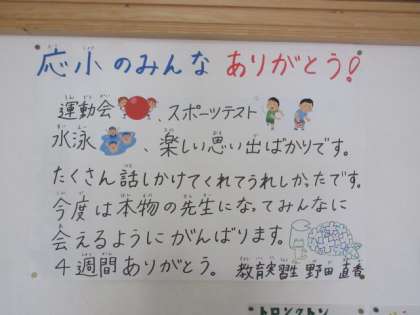 応小のみんな ありがとう!
運動会、スポーツテスト
水泳、楽しい思い出ばかりです。
たくさん話しかけてくれてうれしかったです。
今度は本物の先生になってみんなに
会えるようにがんばります。
4週間ありがとう。 教育実習生 野田 直香
トロンクトン